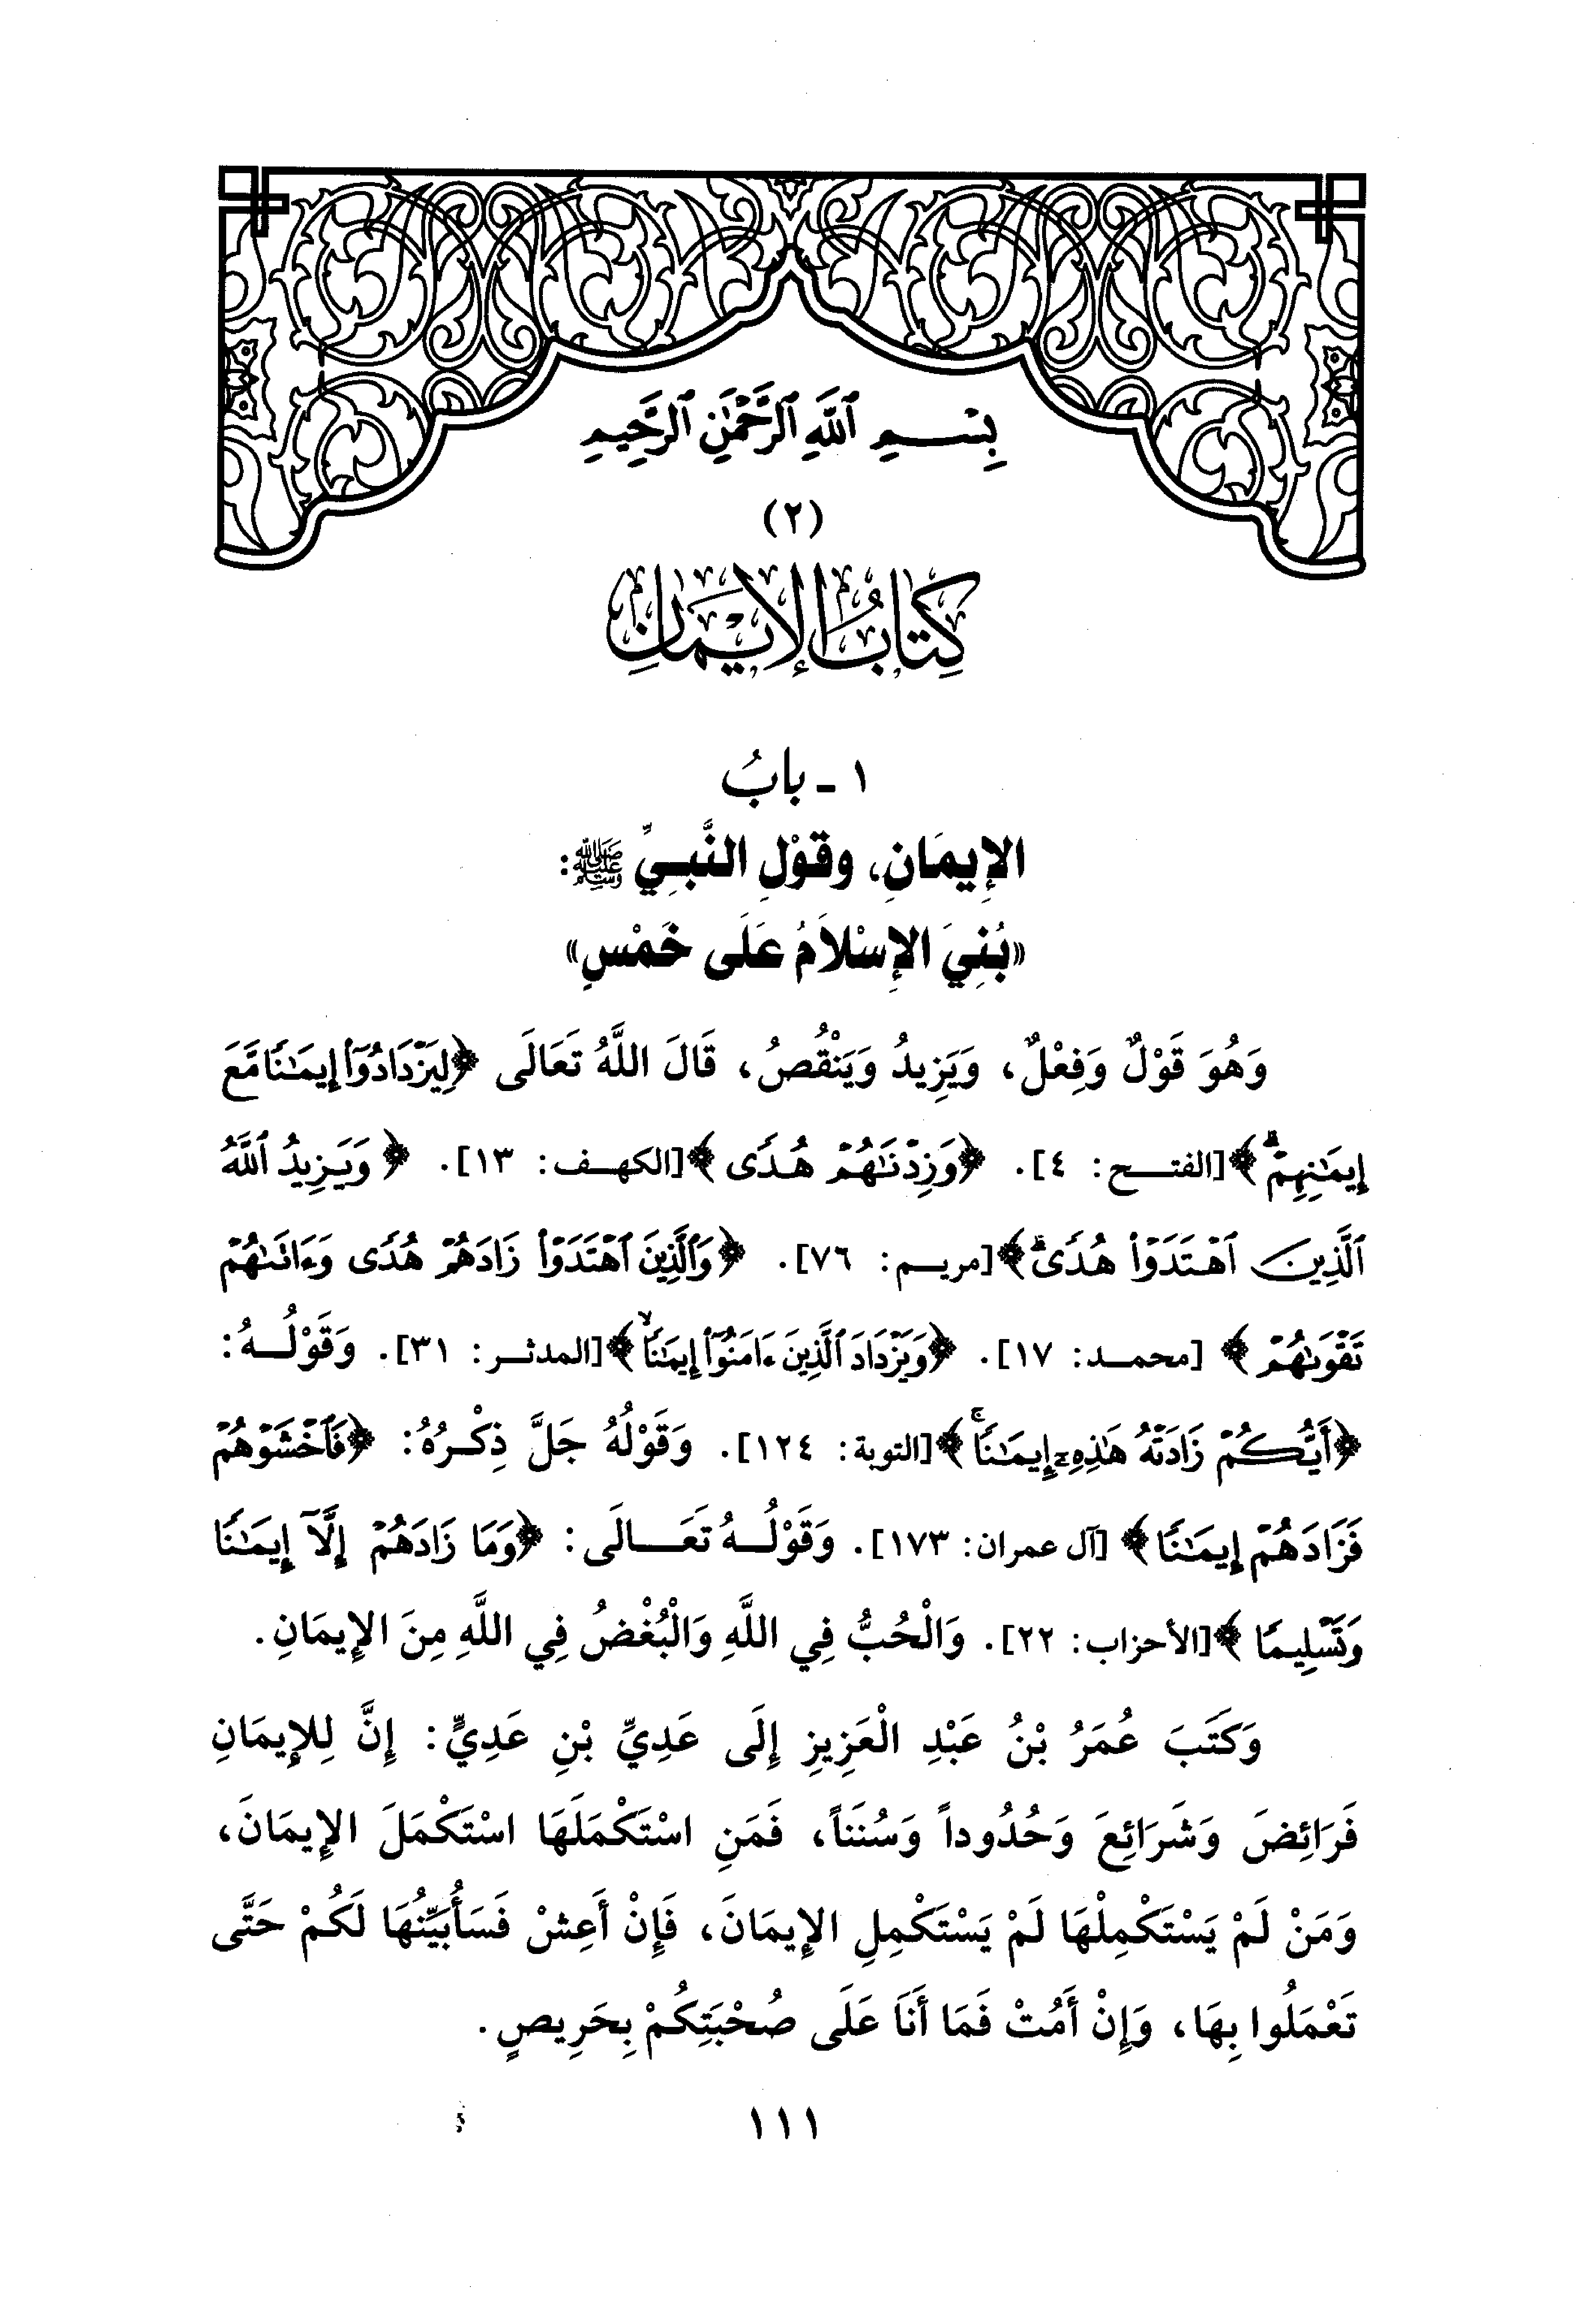 بِسْمِ ٱللَّهِ ٱلرَّحْمَٰنِ ٱلرَّحِيمِ
(٢)
كِتَابُ الإِيمَانِ
١ - بابُ
الإِيمَانِ، وقوْلِ النَّبِيِّ ﷺ:
«بُنِيَ الإِسْلاَمُ عَلَى خَمْسٍ»
وَهُوَ قَوْلٌ وَفِعْلٌ، وَيَزِيدُ وَيَنْقُصُ، قَالَ اللَّهُ تَعَالَى ﴿لِيَزْدَادُوٓا۟ إِيمَـٰنًا مَّعَ
إِيمَـٰنِهِمْ ۗ﴾ [الفتح: ٤]. ﴿وَزِدْنَـٰهُمْ هُدًى﴾ [الكهف: ١٣]. ﴿وَيَزِيدُ ٱللَّهُ
ٱلَّذِينَ ٱهْتَدَوْا۟ هُدًى ۗ﴾ [مريم: ٧٦]. ﴿وَٱلَّذِينَ ٱهْتَدَوْا۟ زَادَهُمْ هُدًى وَءَاتَىٰهُمْ
تَقْوَىٰهُمْ﴾ [محمد: ١٧]. ﴿وَيَزْدَادَ ٱلَّذِينَ ءَامَنُوٓا۟ إِيمَـٰنًا ۙ﴾ [المدثر: ٣١]. وَقَوْلُهُ:
﴿أَيُّكُمْ زَادَتْهُ هَـٰذِهِۦٓ إِيمَـٰنًا ۚ﴾ [التوبة: ١٢٤]. وَقَوْلُهُ جَلَّ ذِكْرُهُ: ﴿فَٱخْشَوْهُمْ
فَزَادَهُمْ إِيمَـٰنًا﴾ [آل عمران: ١٧٣]. وَقَوْلُهُ تَعَالَى: ﴿وَمَا زَادَهُمْ إِلَّآ إِيمَـٰنًا
وَتَسْلِيمًا﴾ [الأحزاب: ٢٢]. وَالْحُبُّ فِي اللَّهِ وَالْبُغْضُ فِي اللَّهِ مِنَ الإِيمَانِ.
وَكَتَبَ عُمَرُ بْنُ عَبْدِ الْعَزِيزِ إِلَى عَدِيِّ بْنِ عَدِيٍّ: إِنَّ لِلإِيمَانِ
فَرَائِضَ وَشَرَائِعَ وَحُدُوداً وَسُنَناً، فَمَنِ اسْتَكْمَلَهَا اسْتَكْمَلَ الإِيمَانَ،
وَمَنْ لَمْ يَسْتَكْمِلْهَا لَمْ يَسْتَكْمِلِ الإِيمَانَ، فَإِنْ أَعِشْ فَسَأُبَيِّنُهَا لَكُمْ حَتَّى
تَعْمَلُوا بِهَا، وَإِنْ أَمُتْ فَمَا أَنَا عَلَى صُحْبَتِكُمْ بِحَرِيصٍ.
١١١